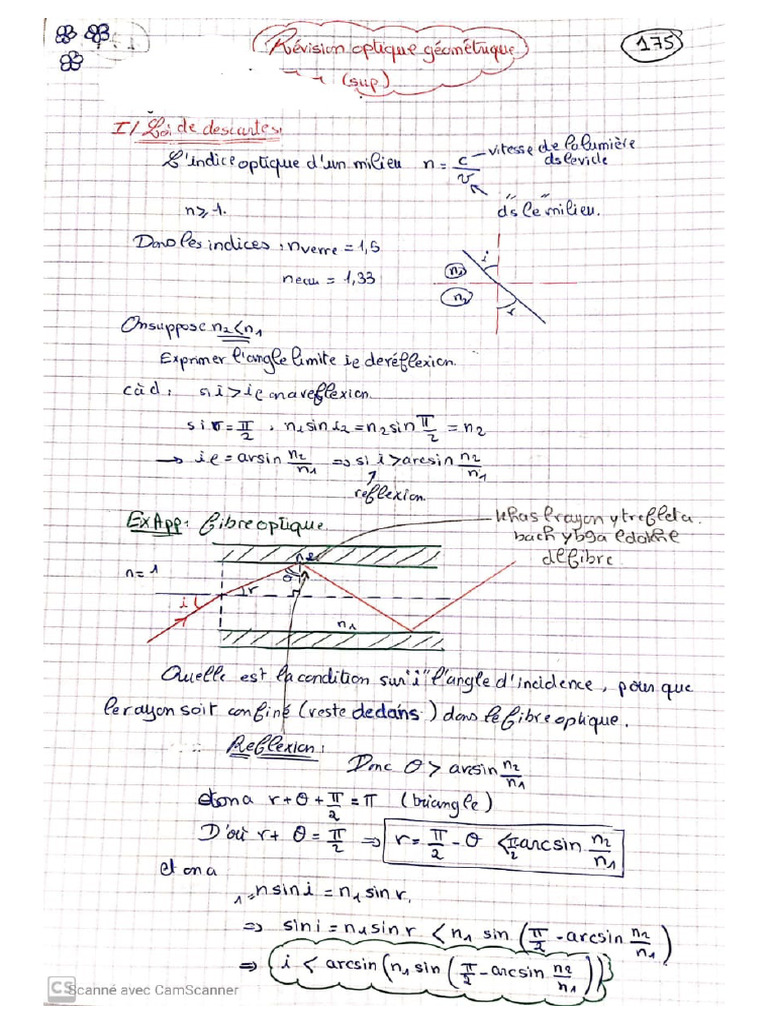 Révision optique géométrique
175
(sup)
I/ Loi de descartes:
L'indice optique d'un milieu n = c/v
vitesse de la lumière
ds le vide
n ⩾ 1.
" "
ds le milieu.
Dans les indices : nverre = 1,5
neau = 1,33
i
n1
n2
r
On suppose n2 < n1
Exprimer l'angle limite ie de réflexion.
càd : si i > ie on a reflexion.
si r = π/2, n1 sin i2 = n2 sin π/2 = n2
→ ie = arsin n2/n1 ⇒ si i > arcsin n2/n1
reflexion.
Ex App: fibre optique.
khas l rayon ytreflecta
bach ybga ldakhl
dl fibre
n = 1
n2
θ
i
r
n1
Quelle est la condition sur "i" l'angle d'incidence, pour que
le rayon soit confiné (reste dedans) dans le fibre optique.
Reflexion:
Donc θ > arcsin n2/n1
et on a r + θ + π/2 = π (triangle)
D'où r + θ = π/2 ⇒ r = π/2 - θ < π/2 - arcsin n2/n1
et on a
1 = n sin i = n1 sin r.
⇒ sin i = n1 sin r < n1 sin (π/2 - arcsin n2/n1)
⇒ i < arcsin (n1 sin (π/2 - arcsin n2/n1))
CS Scanné avec CamScanner